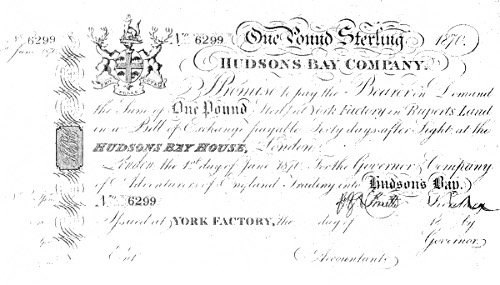 No. 6299
No. 6299 One Pound Sterling 1870.
June 1870
HUDSONS BAY COMPANY.
I Promise to pay the Bearer on Demand
the Sum of One Pound Sterl.g at York Factory in Ruperts Land
in a Bill of Exchange payable Sixty days after Sight, at the
HUDSONS BAY HOUSE, London.
London the 12th day of June 1870. For the Governor & Company
of Adventurers of England Trading into Hudson's Bay.
No. 6299
Issued at YORK FACTORY, the day of 18 by
Governor.
Ent. Accountant.